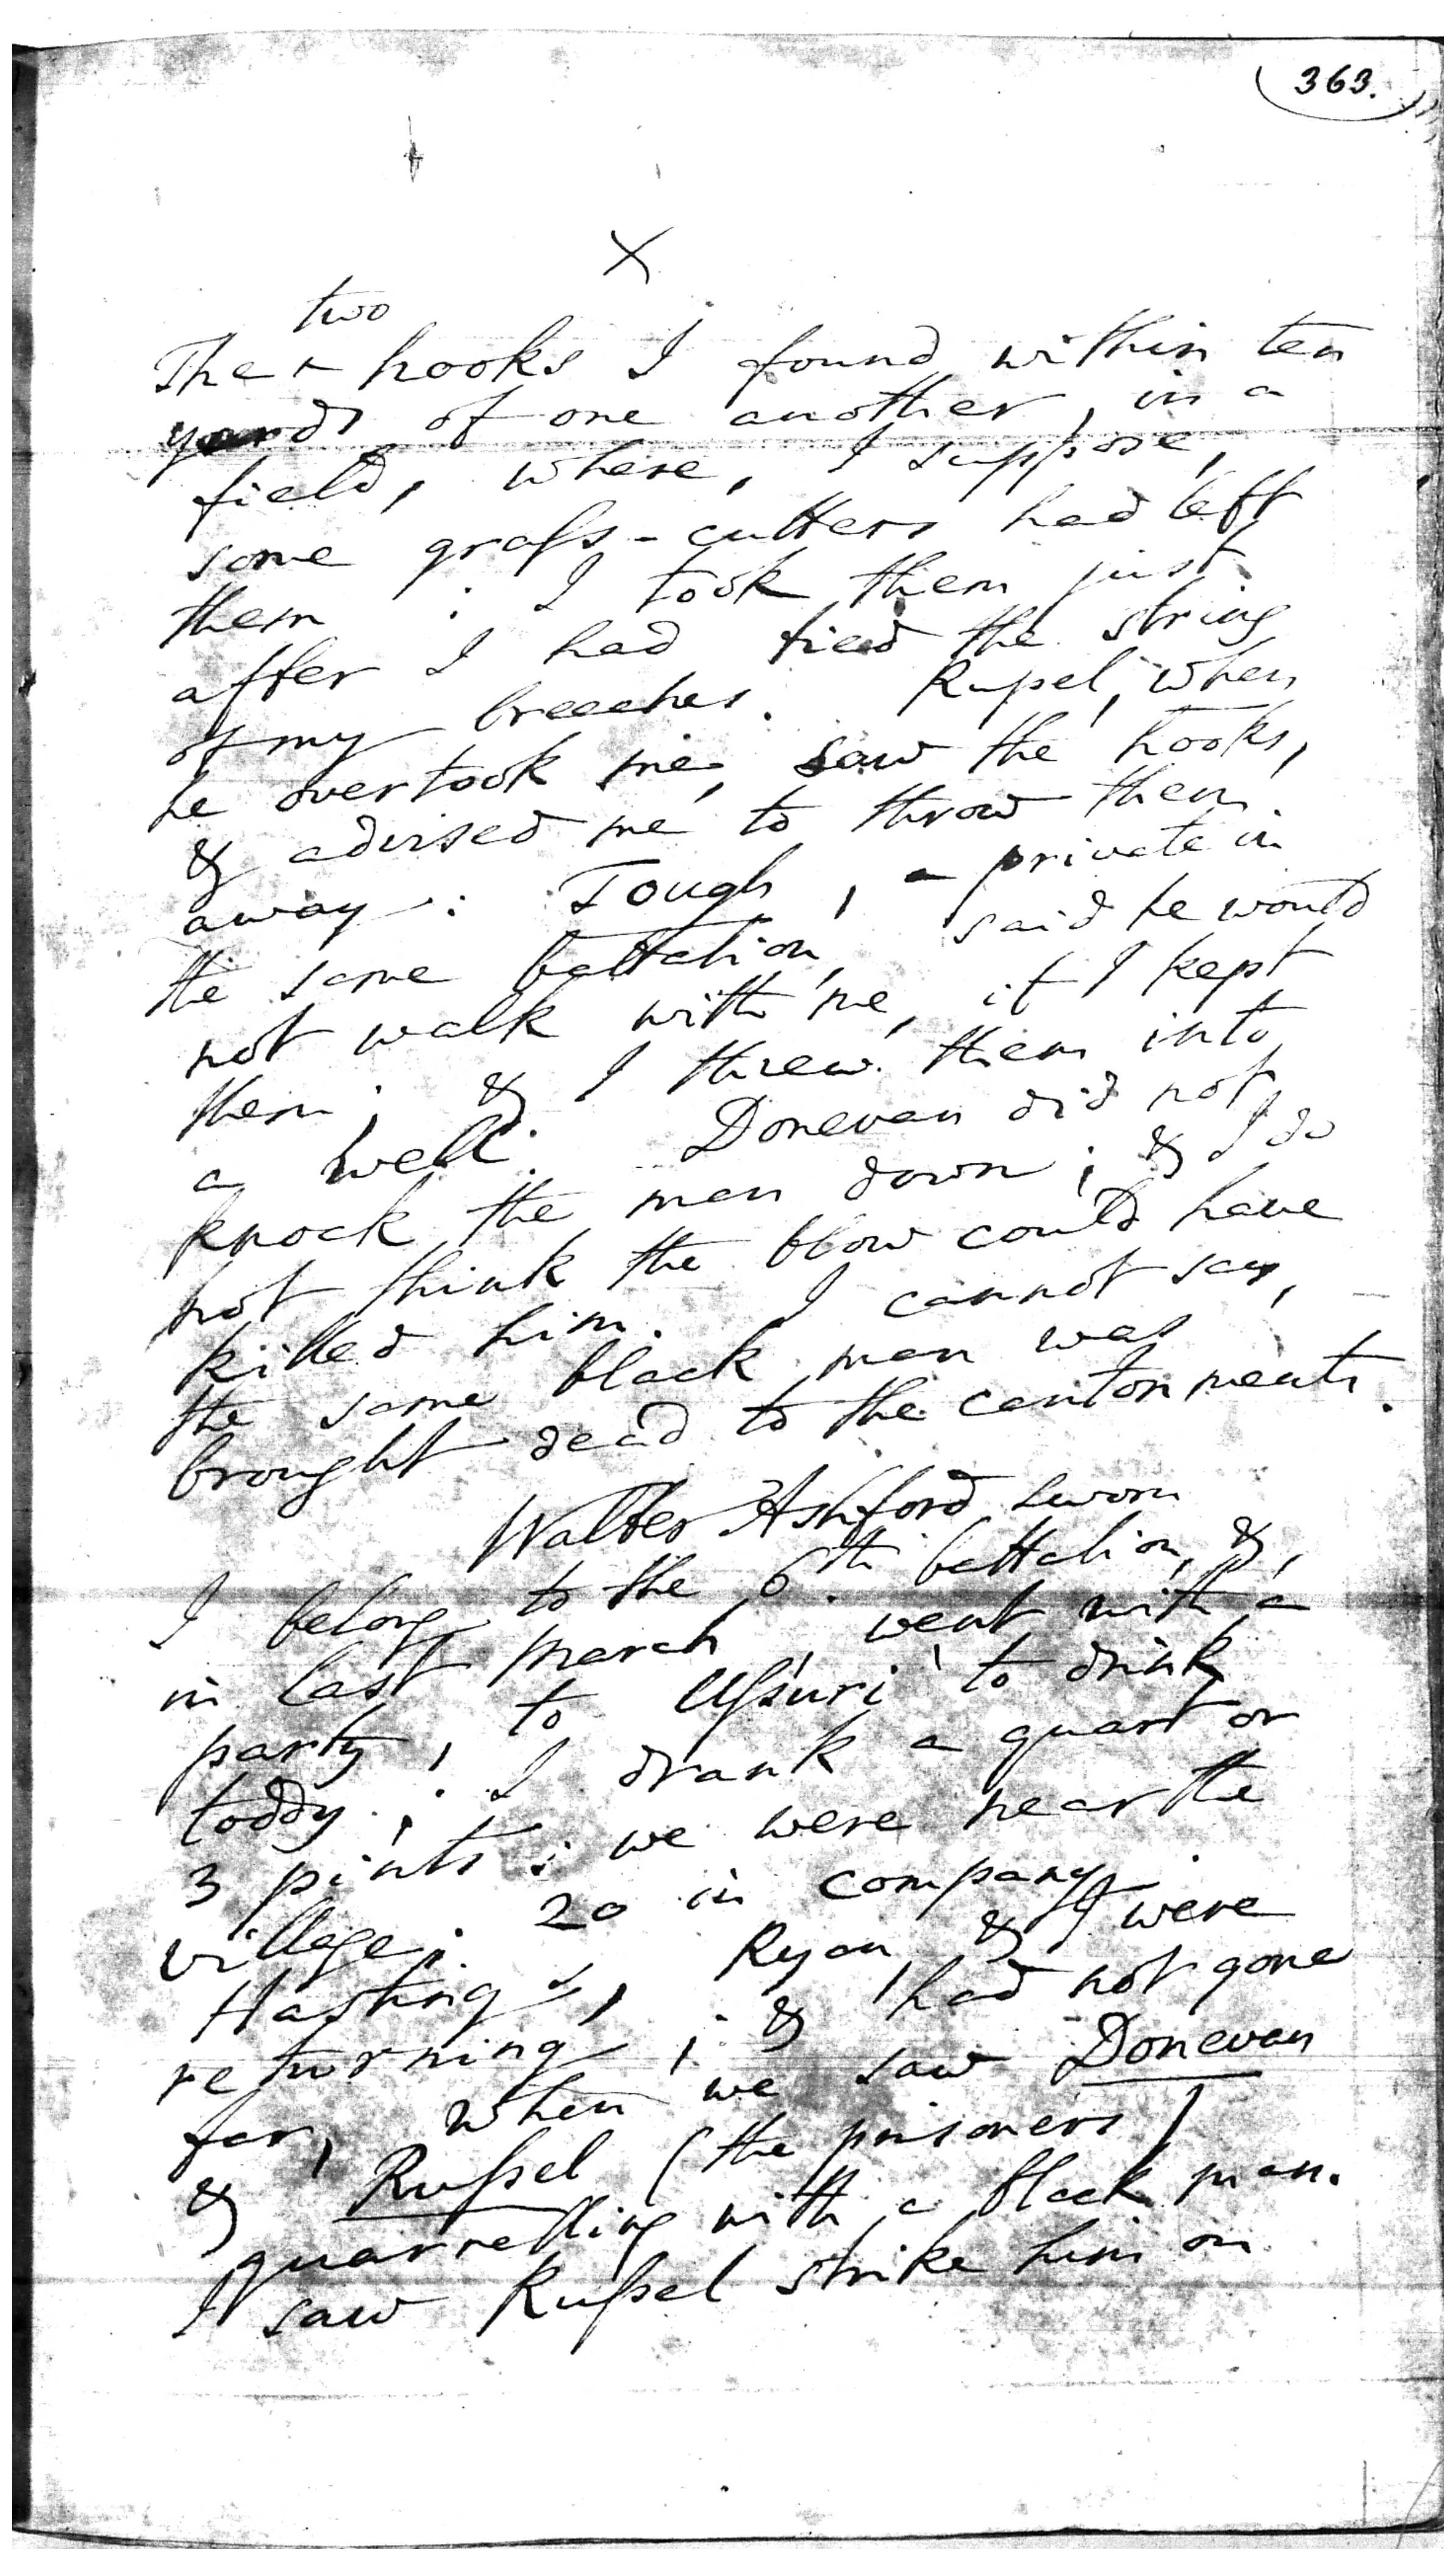 363.
X
two
The ^ hooks I found within ten
yards of one another, in a
field, where, I suppose,
some graſs-cutters had left
them : I took them just
after I had tied the string
of my breeches. Ruſsel, when
he overtook me, saw the hooks,
& advised me to throw them
away : Tough, a private in
the same battalion, said he would
not walk with me, if I kept
them ; & I threw them into
a well. Donevan did not
knock the man down ; & I do
not think the blow could have
killed him. I cannot say,
the same black man was
brought dead to the cantonments.
Walter Ashford sworn
I belong to the 6.th battalion, &,
in last March, went with a
party, to Uſsuri to drink
toddy ; I drank a quart or
3 pints : we were near the
village ; 20 in company.
Hastings, Ryan, & I were
returning ; & had not gone
far, when we saw Donevan
& Ruſsel (the prisoners)
quarrelling with a black man.
I saw Ruſsel strike him on